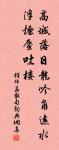 高城落日龍吟角遠水
浮煙蜃吐樓